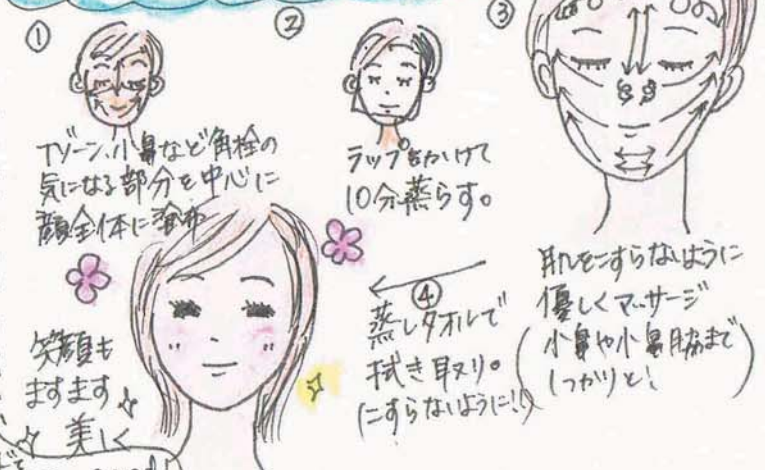 ①
Tゾーン、小鼻など角栓の
気になる部分を中心に
顔全体に塗布
②
ラップをかけて
10分蒸らす。
③
肌をこすらないように
優しくマッサージ
(小鼻や小鼻脇まで
しっかりと!)
④
蒸しタオルで
拭き取り。
(こすらないように!!)
笑顔も
ますます
美しく